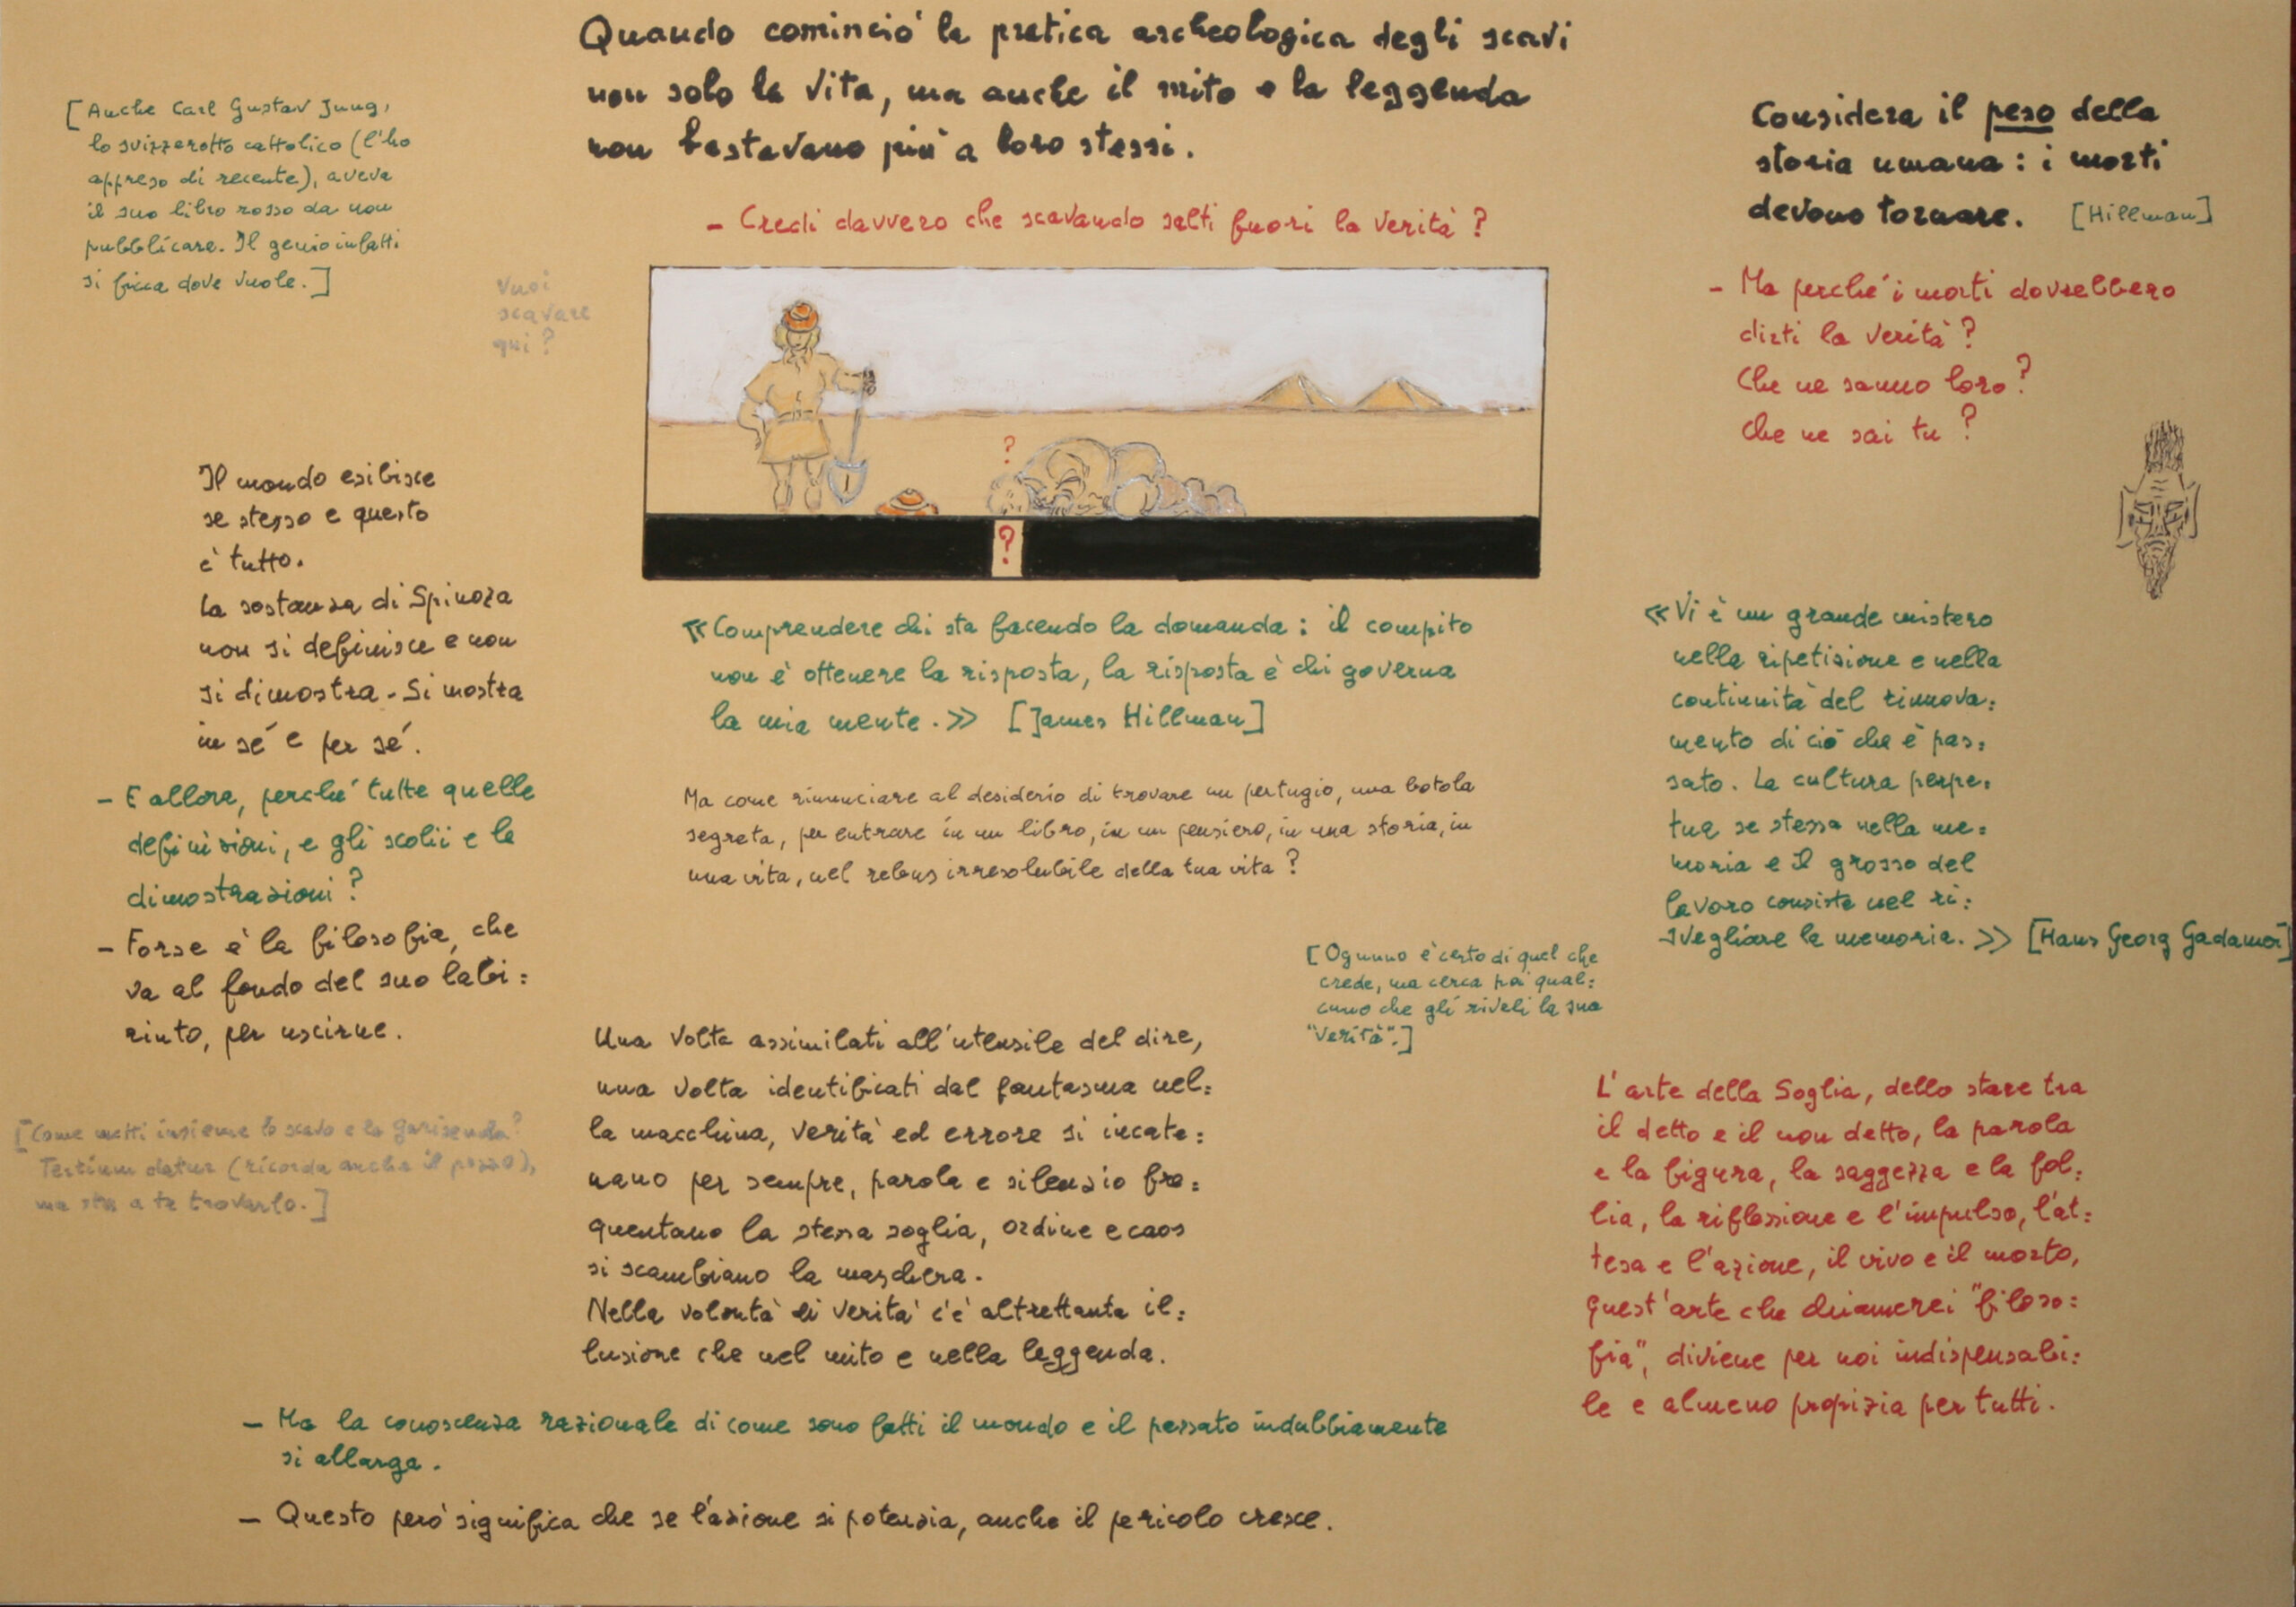 Quando cominciò la pratica archeologica degli scavi
non solo la vita, ma anche il mito e la leggenda
non bastavano più a loro stessi.
- Credi davvero che scavando salti fuori la verità?
[Anche Carl Gustav Jung,
lo svizzerotto cattolico (l'ho
appreso di recente), aveva
il suo libro rosso da non
pubblicare. Il genio infatti
si ficca dove vuole.]
Vuoi
scavare
qui?
Considera il peso della
storia umana: i morti
devono tornare. [Hillman]
- Ma perché i morti dovrebbero
dirti la verità?
Che ne sanno loro?
Che ne sai tu?
?
?
Il mondo esibisce
se stesso e questo
è tutto.
La sostanza di Spinoza
non si definisce e non
si dimostra - Si mostra
in sé e per sé.
- E allora, perché tutte quelle
definizioni, e gli scolii e le
dimostrazioni?
- Forse è la filosofia, che
va al fondo del suo labi:
rinto, per uscirne.
[Come metti insieme lo scavo e la garisenda?
Tertium datur (ricorda anche il pozzo),
ma sta a te trovarlo.]
«Comprendere chi sta facendo la domanda: il compito
non è ottenere la risposta, la risposta è chi governa
la mia mente.» [James Hillman]
Ma come rinunciare al desiderio di trovare un pertugio, una botola
segreta, per entrare in un libro, in un pensiero, in una storia, in
una vita, nel rebus irresolubile della tua vita?
[Ognuno è certo di quel che
crede, ma cerca poi qual:
cuno che gli riveli la sua
"verità".]
Una volta assimilati all'utensile del dire,
una volta identificati dal fantasma nel:
la macchina, verità ed errore si incate:
nano per sempre, parola e silenzio fre:
quentano la stessa soglia, ordine e caos
si scambiano la maschera.
Nella volontà di verità c'è altrettanta il:
lusione che nel mito e nella leggenda.
- Ma la conoscenza razionale di come sono fatti il mondo e il passato indubbiamente
si allarga.
- Questo però significa che se l'azione si potenzia, anche il pericolo cresce.
«Vi è un grande mistero
nella ripetizione e nella
continuità del rinnova:
mento di ciò che è pas:
sato. La cultura perpe:
tua se stessa nella me:
moria e il grosso del
lavoro consiste nel ri:
svegliare la memoria.» [Hans Georg Gadamer]
L'arte della Soglia, dello stare tra
il detto e il non detto, la parola
e la figura, la saggezza e la fol:
lia, la riflessione e l'impulso, l'at:
tesa e l'azione, il vivo e il morto,
quest'arte che chiamerei "filoso:
fia", diviene per noi indispensabi:
le e almeno propizia per tutti.